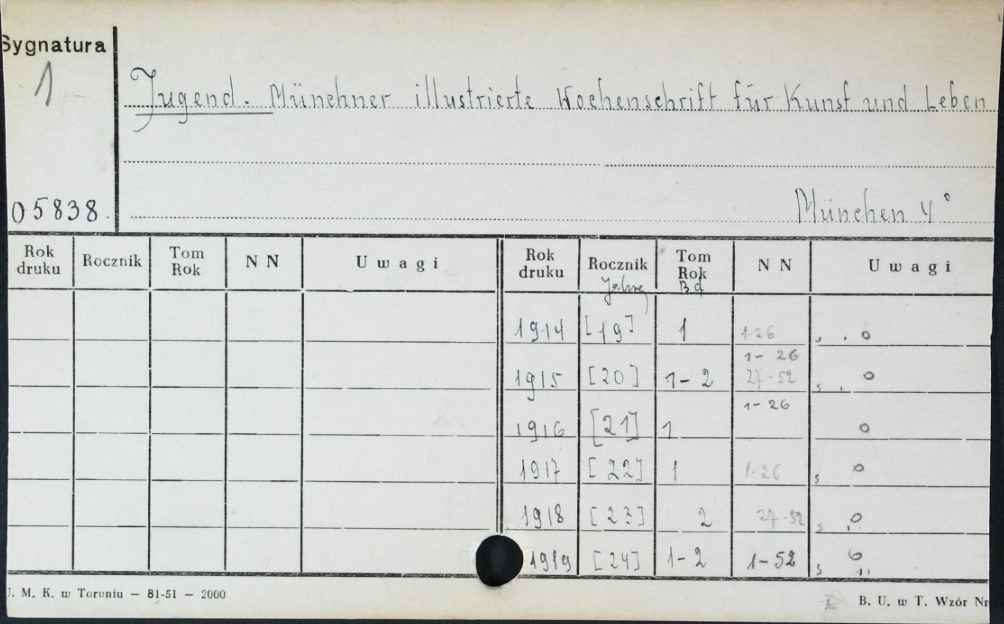 Sygnatura
1
Jugend. Münchner illustrierte Wochenschrift für Kunst und Leben
05838.
München 4°
Rok druku Rocznik Tom Rok N N Uwagi Rok druku Rocznik Tom Rok N N Uwagi
Jahrg Bd
1914 [19] 1 1-26 o
1-26
1915 [20] 1-2 27-52 o
1-26
1916 [21] 1 o
1917 [22] 1 1-26 o
1918 [23] 2 27-52 o
1919 [24] 1-2 1-52
J. M. K. w Toruniu — 81-51 — 2000
B. U. w T. Wzór Nr